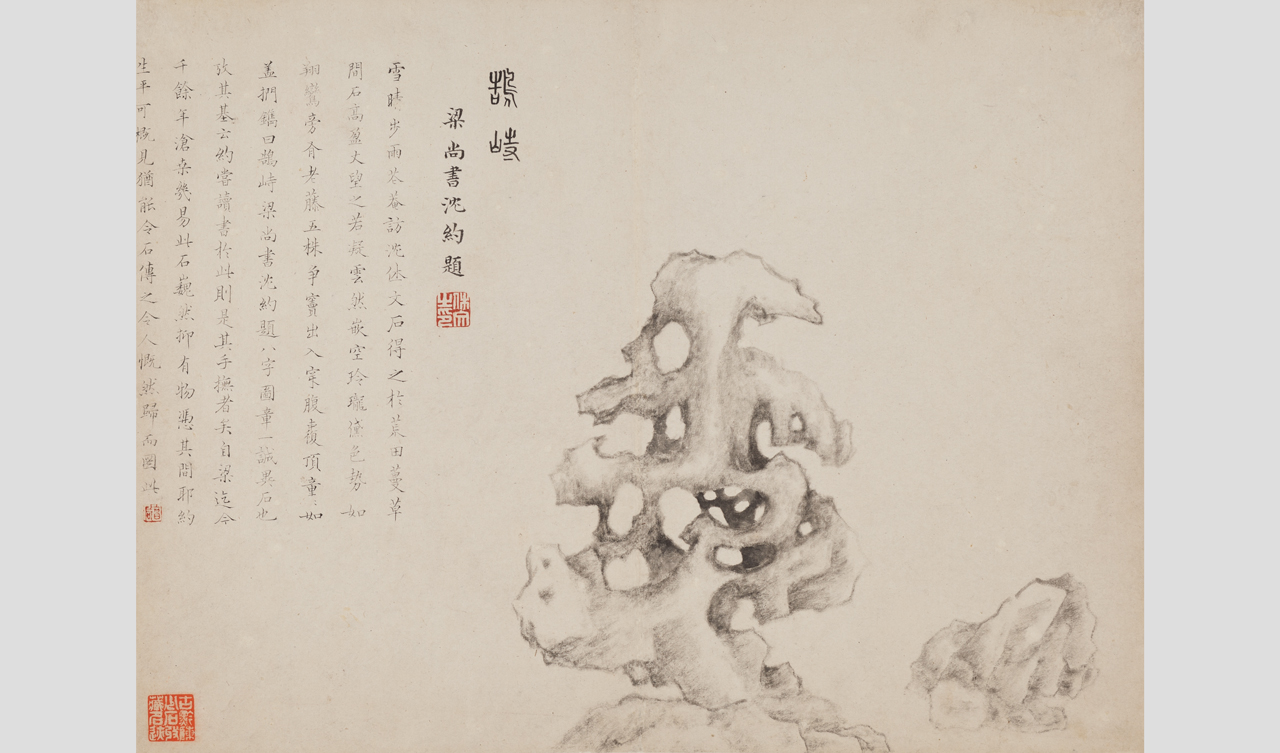 鵠峙
梁尚書沈約題
雪晴步雨峇菴訪沈休文石得之於荒田蔓草
間石高盈丈望之若凝雲然嵌空玲瓏黛色勢如
翔鸞旁有老藤五株爭竇出入穿腹覆頂童童如
蓋捫鐫曰鵠峙梁尚書沈約題八字圖章一誠異石也
攷其基云約嘗讀書於此則是其手撫者矣自梁迄今
千餘年滄桑幾易此石巍然抑有物憑其間耶約
生平可慨見猶能令石傳之令人慨然歸而圖此